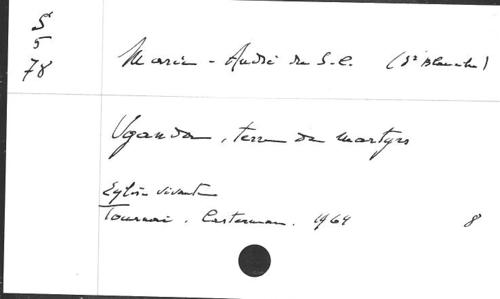 S
5
78
Marie-André du S.C. (Sr Blanche)
Uganda, terre de martyrs
Eglise vivante
Tournai. Casterman. 1964
8